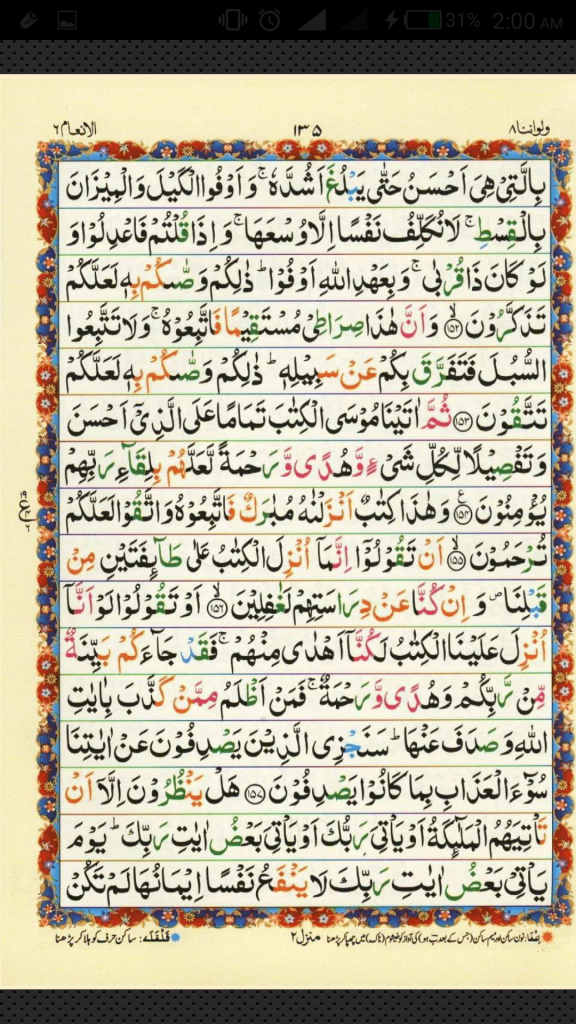 31% 2:00 AM
ولواننا ٨ ١٣٥ الانعام ٦
بِالَّتِیْ هِیَ اَحْسَنُ حَتّٰی یَبْلُغَ اَشُدَّهٗ ۚ وَ اَوْفُوا الْكَیْلَ وَ الْمِیْزَانَ
بِالْقِسْطِ ۚ لَا نُكَلِّفُ نَفْسًا اِلَّا وُسْعَهَا ۚ وَ اِذَا قُلْتُمْ فَاعْدِلُوْا وَ
لَوْ كَانَ ذَا قُرْبٰی ۚ وَ بِعَهْدِ اللّٰهِ اَوْفُوْا ؕ ذٰلِكُمْ وَصّٰىكُمْ بِهٖ لَعَلَّكُمْ
تَذَكَّرُوْنَ ۙ﴿۱۵۲﴾ وَ اَنَّ هٰذَا صِرَاطِیْ مُسْتَقِیْمًا فَاتَّبِعُوْهُ ۚ وَ لَا تَتَّبِعُوا
السُّبُلَ فَتَفَرَّقَ بِكُمْ عَنْ سَبِیْلِهٖ ؕ ذٰلِكُمْ وَصّٰىكُمْ بِهٖ لَعَلَّكُمْ
تَتَّقُوْنَ ﴿۱۵۳﴾ ثُمَّ اٰتَیْنَا مُوْسَی الْكِتٰبَ تَمَامًا عَلَی الَّذِیْۤ اَحْسَنَ
وَ تَفْصِیْلًا لِّكُلِّ شَیْءٍ وَّ هُدًی وَّ رَحْمَةً لَّعَلَّهُمْ بِلِقَآءِ رَبِّهِمْ
یُؤْمِنُوْنَ ﴿۱۵۴﴾ وَ هٰذَا كِتٰبٌ اَنْزَلْنٰهُ مُبٰرَكٌ فَاتَّبِعُوْهُ وَ اتَّقُوْا لَعَلَّكُمْ
تُرْحَمُوْنَ ۙ﴿۱۵۵﴾ اَنْ تَقُوْلُوْۤا اِنَّمَاۤ اُنْزِلَ الْكِتٰبُ عَلٰی طَآىِٕفَتَیْنِ مِنْ
قَبْلِنَا ۪ وَ اِنْ كُنَّا عَنْ دِرَاسَتِهِمْ لَغٰفِلِیْنَ ۙ﴿۱۵۶﴾ اَوْ تَقُوْلُوْا لَوْ اَنَّاۤ
اُنْزِلَ عَلَیْنَا الْكِتٰبُ لَكُنَّاۤ اَهْدٰی مِنْهُمْ ۚ فَقَدْ جَآءَكُمْ بَیِّنَةٌ
مِّنْ رَّبِّكُمْ وَ هُدًی وَّ رَحْمَةٌ ۚ فَمَنْ اَظْلَمُ مِمَّنْ كَذَّبَ بِاٰیٰتِ
اللّٰهِ وَ صَدَفَ عَنْهَا ؕ سَنَجْزِی الَّذِیْنَ یَصْدِفُوْنَ عَنْ اٰیٰتِنَا
سُوْٓءَ الْعَذَابِ بِمَا كَانُوْا یَصْدِفُوْنَ ﴿۱۵۷﴾ هَلْ یَنْظُرُوْنَ اِلَّاۤ اَنْ
تَاْتِیَهُمُ الْمَلٰٓىِٕكَةُ اَوْ یَاْتِیَ رَبُّكَ اَوْ یَاْتِیَ بَعْضُ اٰیٰتِ رَبِّكَ ؕ یَوْمَ
یَاْتِیْ بَعْضُ اٰیٰتِ رَبِّكَ لَا یَنْفَعُ نَفْسًا اِیْمَانُهَا لَمْ تَكُنْ
منزل ۲ قلقلہ: ساکن حرف کو ہلا کر پڑھنا